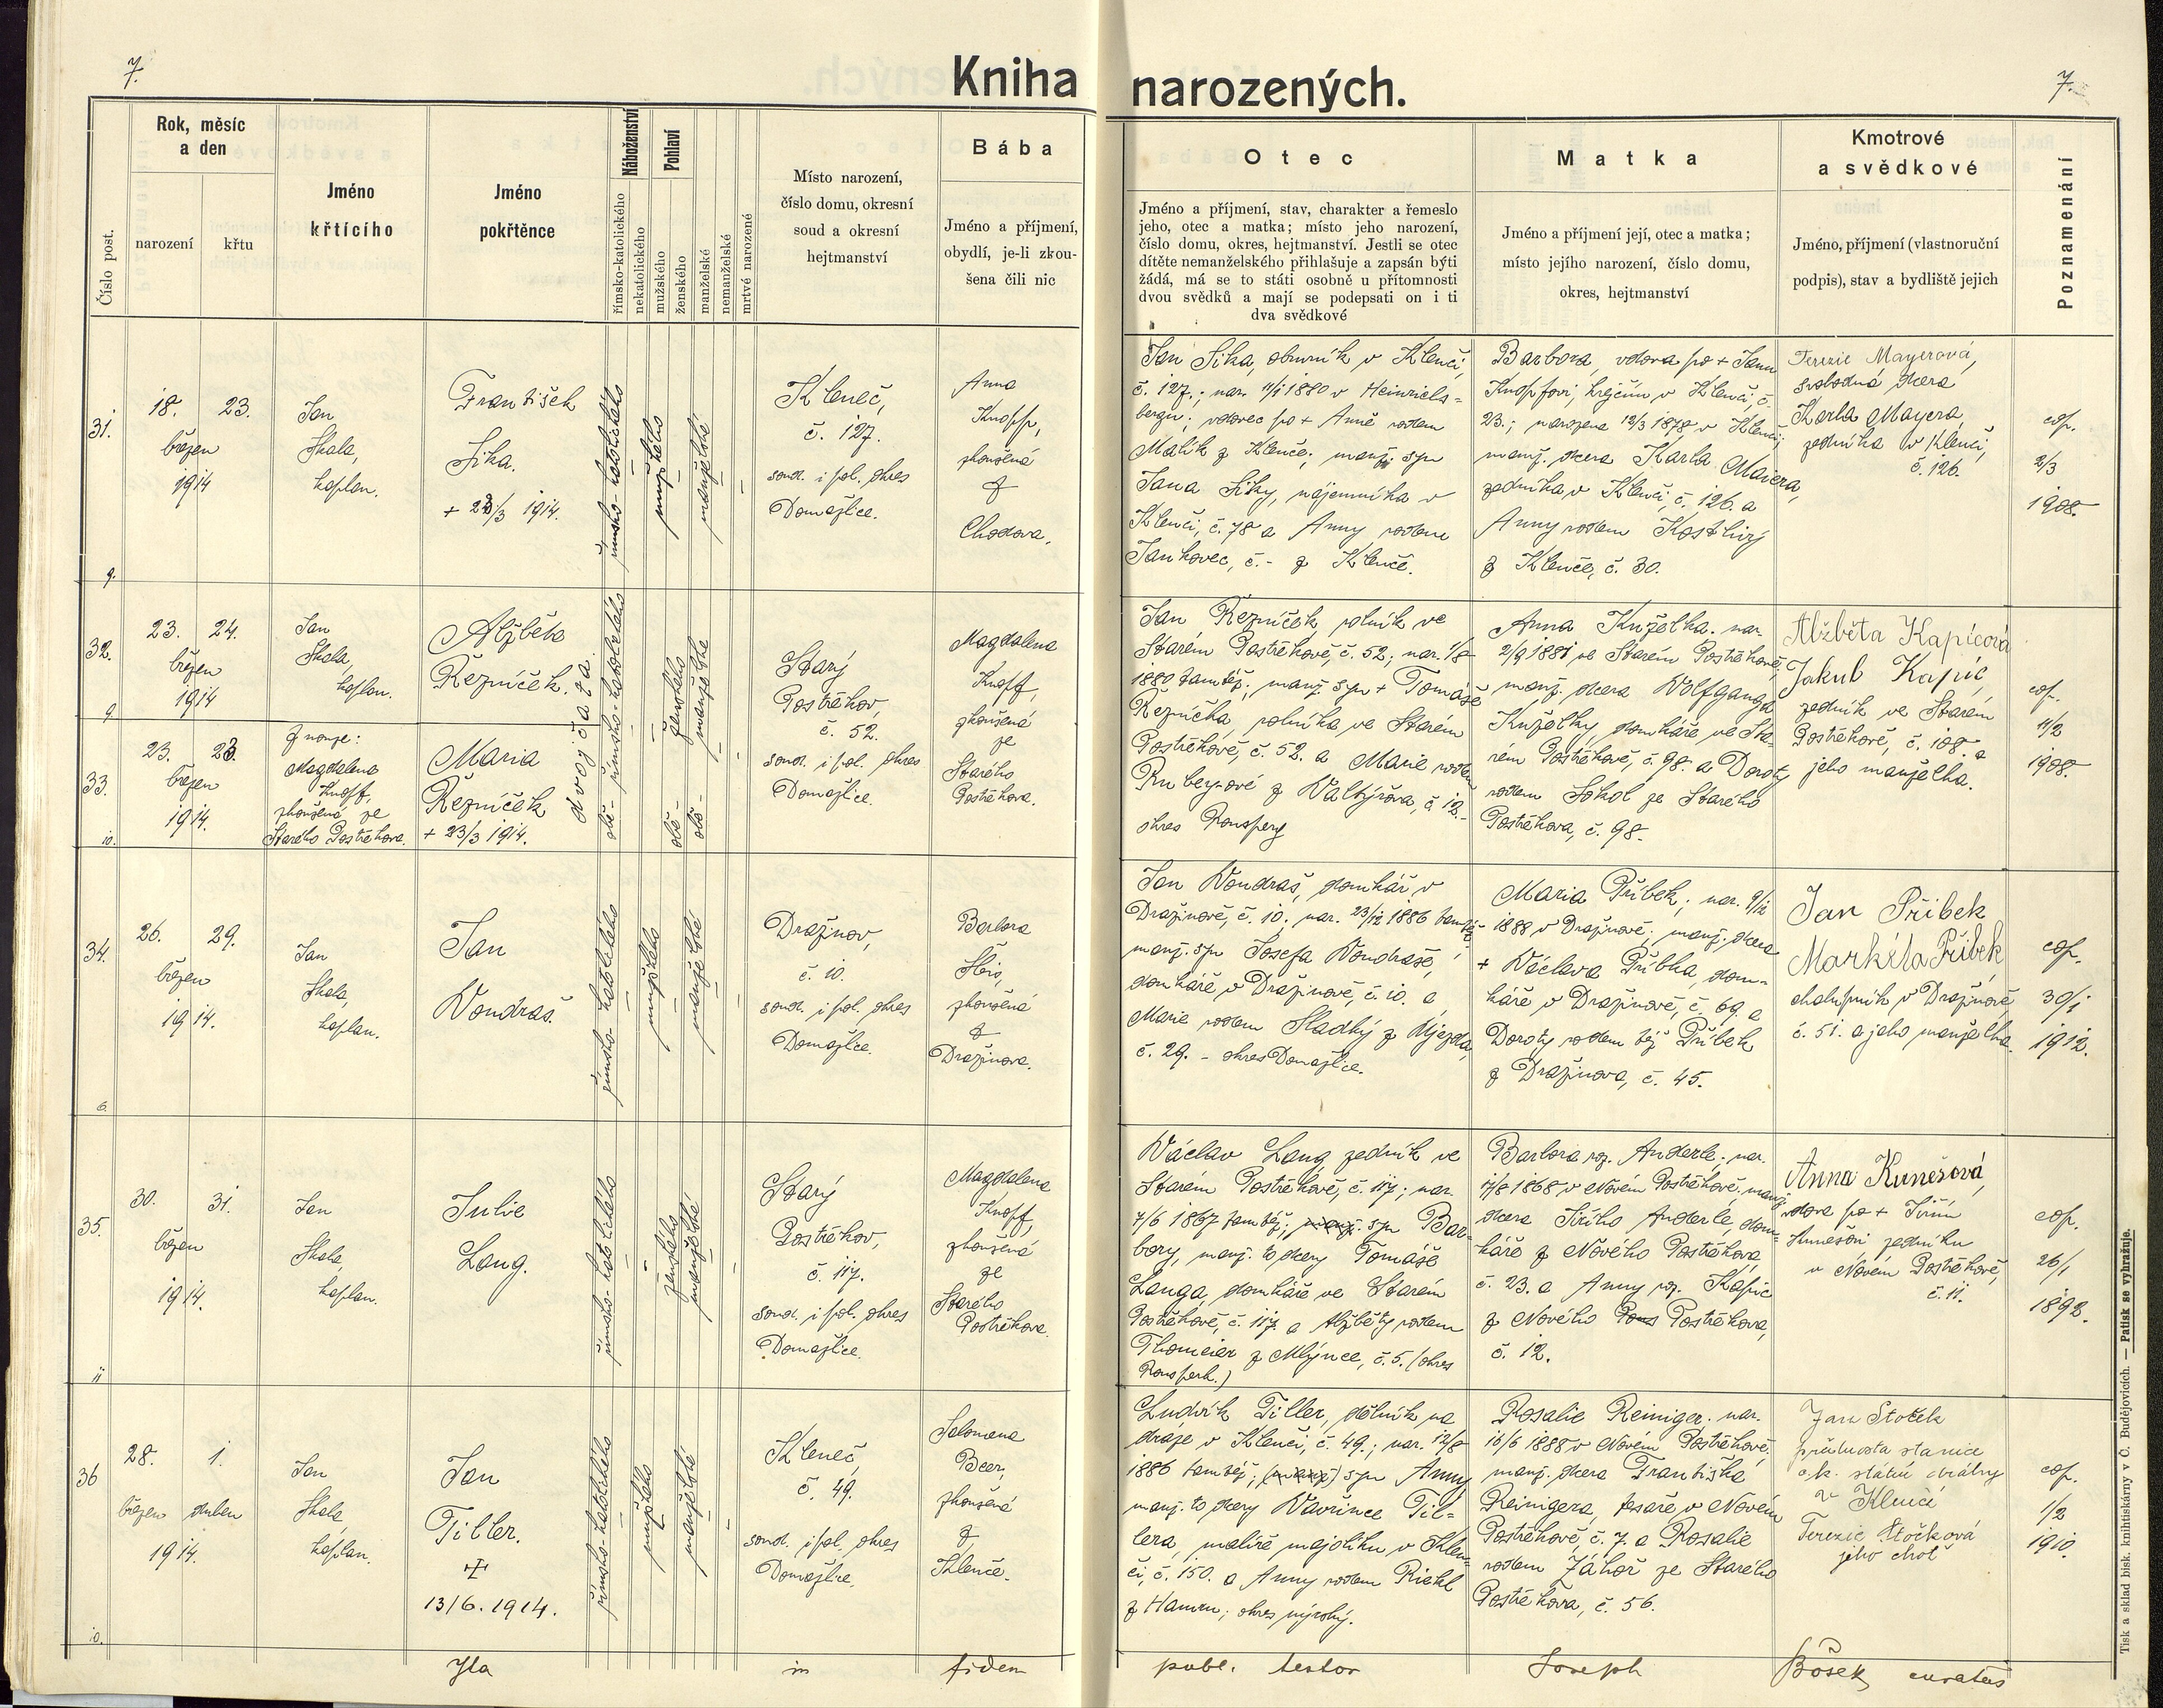 7.
Kniha narozených.
7.
Číslo post.
Rok, měsíc
a den
narození
křtu
Jméno
křtícího
Jméno
pokřtěnce
Náboženství
římsko-katolického
nekatolického
Pohlaví
mužského
ženského
manželské
nemanželské
mrtvě narozené
Místo narození,
číslo domu, okresní
soud a okresní
hejtmanství
Bába
Jméno a příjmení,
obydlí, je-li zkou-
šena čili nic
Otec
Jméno a příjmení, stav, charakter a řemeslo
jeho, otec a matka; místo jeho narození,
číslo domu, okres, hejtmanství. Jestli se otec
dítěte nemanželského přihlašuje a zapsán býti
žádá, má se to státi osobně u přítomnosti
dvou svědků a mají se podepsati on i ti
dva svědkové
Matka
Jméno a příjmení její, otec a matka;
místo jejího narození, číslo domu,
okres, hejtmanství
Kmotrové
a svědkové
Jméno, příjmení (vlastnoruční
podpis), stav a bydliště jejich
Poznamenání
31.
9.
18. 23.
březen
1914
Jan
Skala,
kaplan.
František
Sika.
+ 23/3 1914.
římsko-katolického
mužského
manželské
Kleneč,
č. 127.
soud. i pol. okres
Domažlice.
Anna
Knopp,
zkoušená
z
Chodova.
Jan Sika, obuvník v Klenči,
č. 127.; nar. 11/1 1880 v Heinrichs-
bergu; vdovec po + Anně rodem
Malík z Klenče; manž. syn
Jana Siky, nájemníka v
Klenči, č. 78 a Anny rodem
Jankovec, č. - z Klenče.
Barbora, vdova po + Janu
Knopfovi, krejčím v Klenči, č.
23.; narozena 12/3 1878 v Klenči;
manž. dcera Karla Maiera,
zedníka v Klenči, č. 126. a
Anny rodem Kostlivý
z Klenče, č. 30.
Terezie Mayerová,
svobodná dcera
Karla Mayera,
zedníka v Klenči,
č. 126.
cop.
2/3
1908.
32.
9.
23. 24.
březen
1914
Jan
Skala,
kaplan.
Alžběta
Řezníček.
dvojčata.
římsko-katolického
ženského
manželské
Starý
Postřekov,
č. 52.
soud. i pol. okres
Domažlice.
Magdalena
Knopf,
zkoušená
ze
Starého
Postřekova.
33.
10.
23. 23.
březen
1914.
Z nouze:
Magdalena
Knopf,
zkoušená ze
Starého Postřekova.
Maria
Řezníček
+ 23/3 1914.
Jan Řezníček rolník ve
Starém Postřekově, č. 52; nar. 1/8
1880 tamtéž; manž. syn + Tomáše
Řezníčka, rolníka ve Starém
Postřekově, č. 52. a Marie rodem
z Valtýřova, č. 12.-
okres Ronsperg
Anna Kuželka. nar.
2/9 1881 ve Starém Postřekově,
manž. dcera Wolfganga
Kuželky domkáře ve Sta-
rém Postřekově, č. 98. a Doroty
rodem Sokol ze Starého
Postřekova, č. 98.
Alžběta Kapicová
Jakub Kapic,
zedník ve Starém
Postřekově, č. 108. a
jeho manželka.
cop.
11/2
1908.
34.
6.
26. 29.
březen
1914.
Jan
Skala,
kaplan.
Jan
Vondraš.
římsko-katolického
mužského
manželské
Dražinov,
č. 10.
soud. i pol. okres
Domažlice.
Barbora
zkoušená
z
Dražinova.
Jan Vondraš, domkář v
Dražinově, č. 10. nar. 23/12 1886 tamtéž
manž. syn Josefa Vondraše,
domkáře v Dražinově, č. 10. a
Marie rodem Sladký z Újezda,
č. 29. - okres Domažlice.
Maria Příbek; nar. 9/12
1888 v Dražinově; manž. dcera
+ Václava Příbka, dom-
káře v Dražinově, č. 69. a
Doroty rodem též Příbek
z Dražinova, č. 45.
Jan Příbek
Markéta Příbek
chalupník v Dražinově,
č. 51. a jeho manželka.
cop.
30/1
1912.
35.
11
30. 31.
březen
1914.
Jan
Skala,
kaplan.
Julie
Lang.
římsko-katolického
ženského
manželské
Starý
Postřekov,
č. 117.
soud. i pol. okres
Domažlice.
Magdalena
Knopf,
zkoušená
ze
Starého
Postřekova.
Václav Lang zedník ve
Starém Postřekově, č. 117; nar.
7/6 1867 tamtéž; manž. syn Bar-
bory, manž. to dcery Tomáše
Langa domkáře ve Starém
Postřekově, č. 117. a Alžběty rodem
Thomeier z Mlýnce, č. 5. (okres
Ronsperk.)
Barbora roz. Anderle. nar.
17/8 1868 v Novém Postřekově. manž.
dcera Jiřího Anderle, dom-
káře z Nového Postřekova,
č. 23. a Anny roz. Kapic
z Nového Pous Postřekova,
č. 12.
Anna Kunešová,
vdova po + Jiřím
Kunešovi zedníku
v Novém Postřekově,
č. 11.
cop.
26/1
1892.
36
10.
28. 1.
březen duben
1914.
Jan
Skala
kaplan.
Jan
Tiller.
+
13/6. 1914.
římsko-katolického
mužského
manželské
Kleneč,
č. 49.
soud. i pol. okres
Domažlice.
Salomena
Beer,
zkoušená
z
Klenče.
Ludvík Tiller, dělník na
dráze v Klenči, č. 49.; nar. 12/8
1886 tamtéž; (manž) syn Anny
manž. to dcery Vavřince Til-
lera, malíře majoliku v Klen-
či, č. 150. a Anny rodem Richl
z Hamru; okres nýrský.
Rosalie Reiniger. nar.
16/6 1888 v Novém Postřekově.
manž. dcera Františka
Reinigera, tesaře v Novém
Postřekově, č. 7. a Rosalie
rodem Záhoř ze Starého
Postřekova, č. 56.
Jan Stoček
přednosta stanice
c.k. státní dráhy
v Klenčí
Terezie Stočková
jeho choť
cop.
1/2
1910.
Ita in fidem publ. testor Joseph Bösek curatus
Tisk a sklad bisk. knihtiskárny v Č. Budějovicích. — Patisk se vyhražuje.